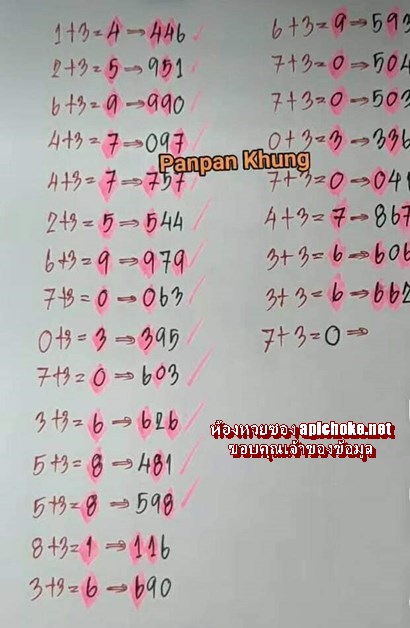 1+3=4⇒446
2+3=5⇒951
6+3=9⇒990
4+3=7⇒097
4+3=7⇒757
2+3=5⇒544
6+3=9⇒979
7+3=0⇒063
0+3=3⇒395
7+3=0⇒603
3+3=6⇒626
5+3=8⇒481
5+3=8⇒598
8+3=1⇒116
3+3=6⇒690
6+3=9⇒593
7+3=0⇒504
7+3=0⇒503
0+3=3⇒336
Panpan Khung
7+3=0⇒041
4+3=7⇒867
3+3=6⇒606
3+3=6⇒662
7+3=0⇒
ห้องหวยซอง apichoke.net
ขอบคุณเจ้าของข้อมูล